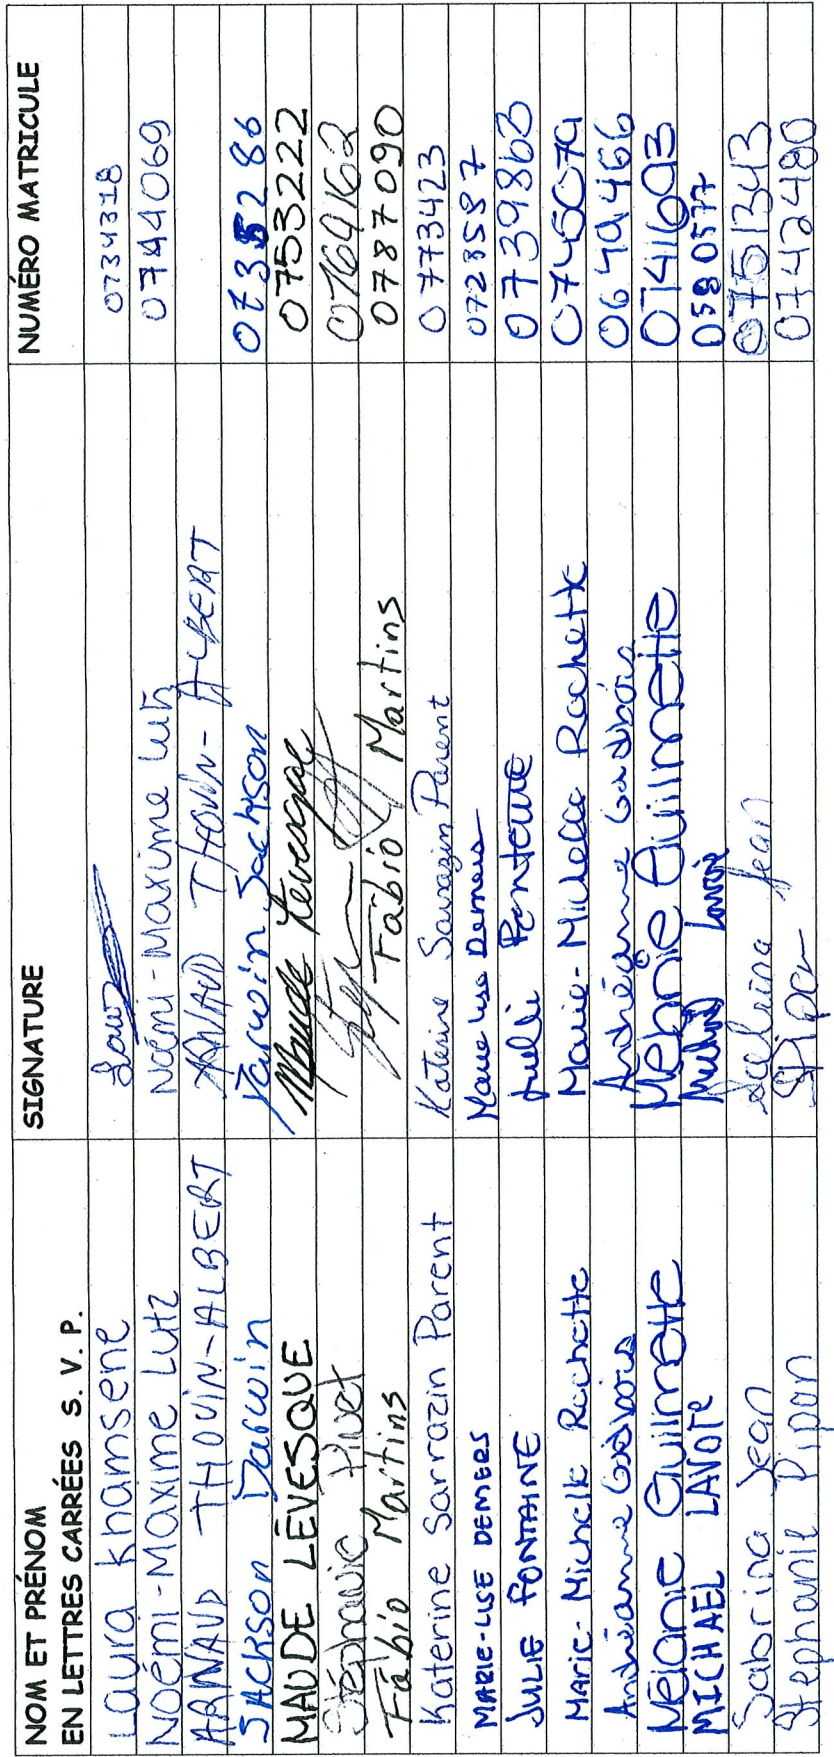 NOM ET PRÉNOM
EN LETTRES CARRÉES S. V. P. SIGNATURE NUMÉRO MATRICULE
Laura Khamsene 0734318
Noémi-Maxime Lutz Noémi-Maxime Lutz 0744069
ARNAUD THOUIN-ALBERT ARNAUD THOUIN-ALBERT
Jackson Darwin Darwin Jackson 0735286
MAUDE LÉVESQUE Maude Levesque 0753222
Stéphanie 0769162
Fábio Martins Fábio Martins 0787090
Katerine Sarrazin Parent Katerine Sarrazin Parent 0773423
MARIE-LISE DEMERS Marie Lise Demers 0728587
JULIE FONTAINE Julie Fontaine 0739863
Marie-Michelle Rochette Marie-Michelle Rochette 0746079
Andréanne Godbois Andréanne Godbois 0649466
Mélanie Guilmette Mélanie Guilmette 0741693
MICHAEL LAVOIE 0580577
Sabrina Jean Sabrina Jean 0751343
Stephanie Pipon SPipon 0742480